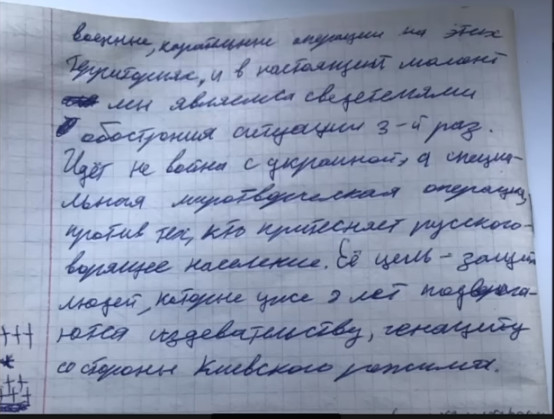 военные, карательные операции на этих
территориях, и в настоящий момент
мы являемся свидетелями
обострения ситуации 3-й раз.
Идёт не война с украиной, а специа-
льная миротворческая операция,
против тех, кто притесняет русского-
ворящее население. Её цель - защит
людей, которые уже 8 лет подверга-
ются издевательству, геноциду
со стороны Киевского режима.